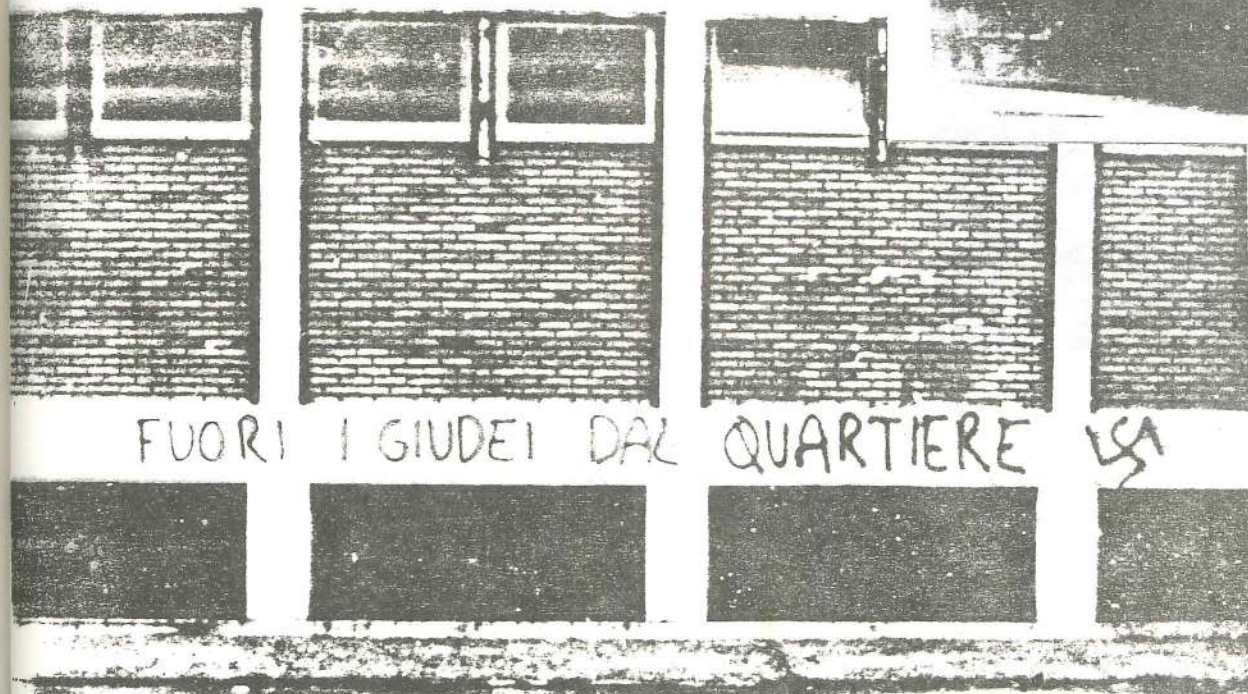 FUORI I GIUDEI DAL QUARTIERE